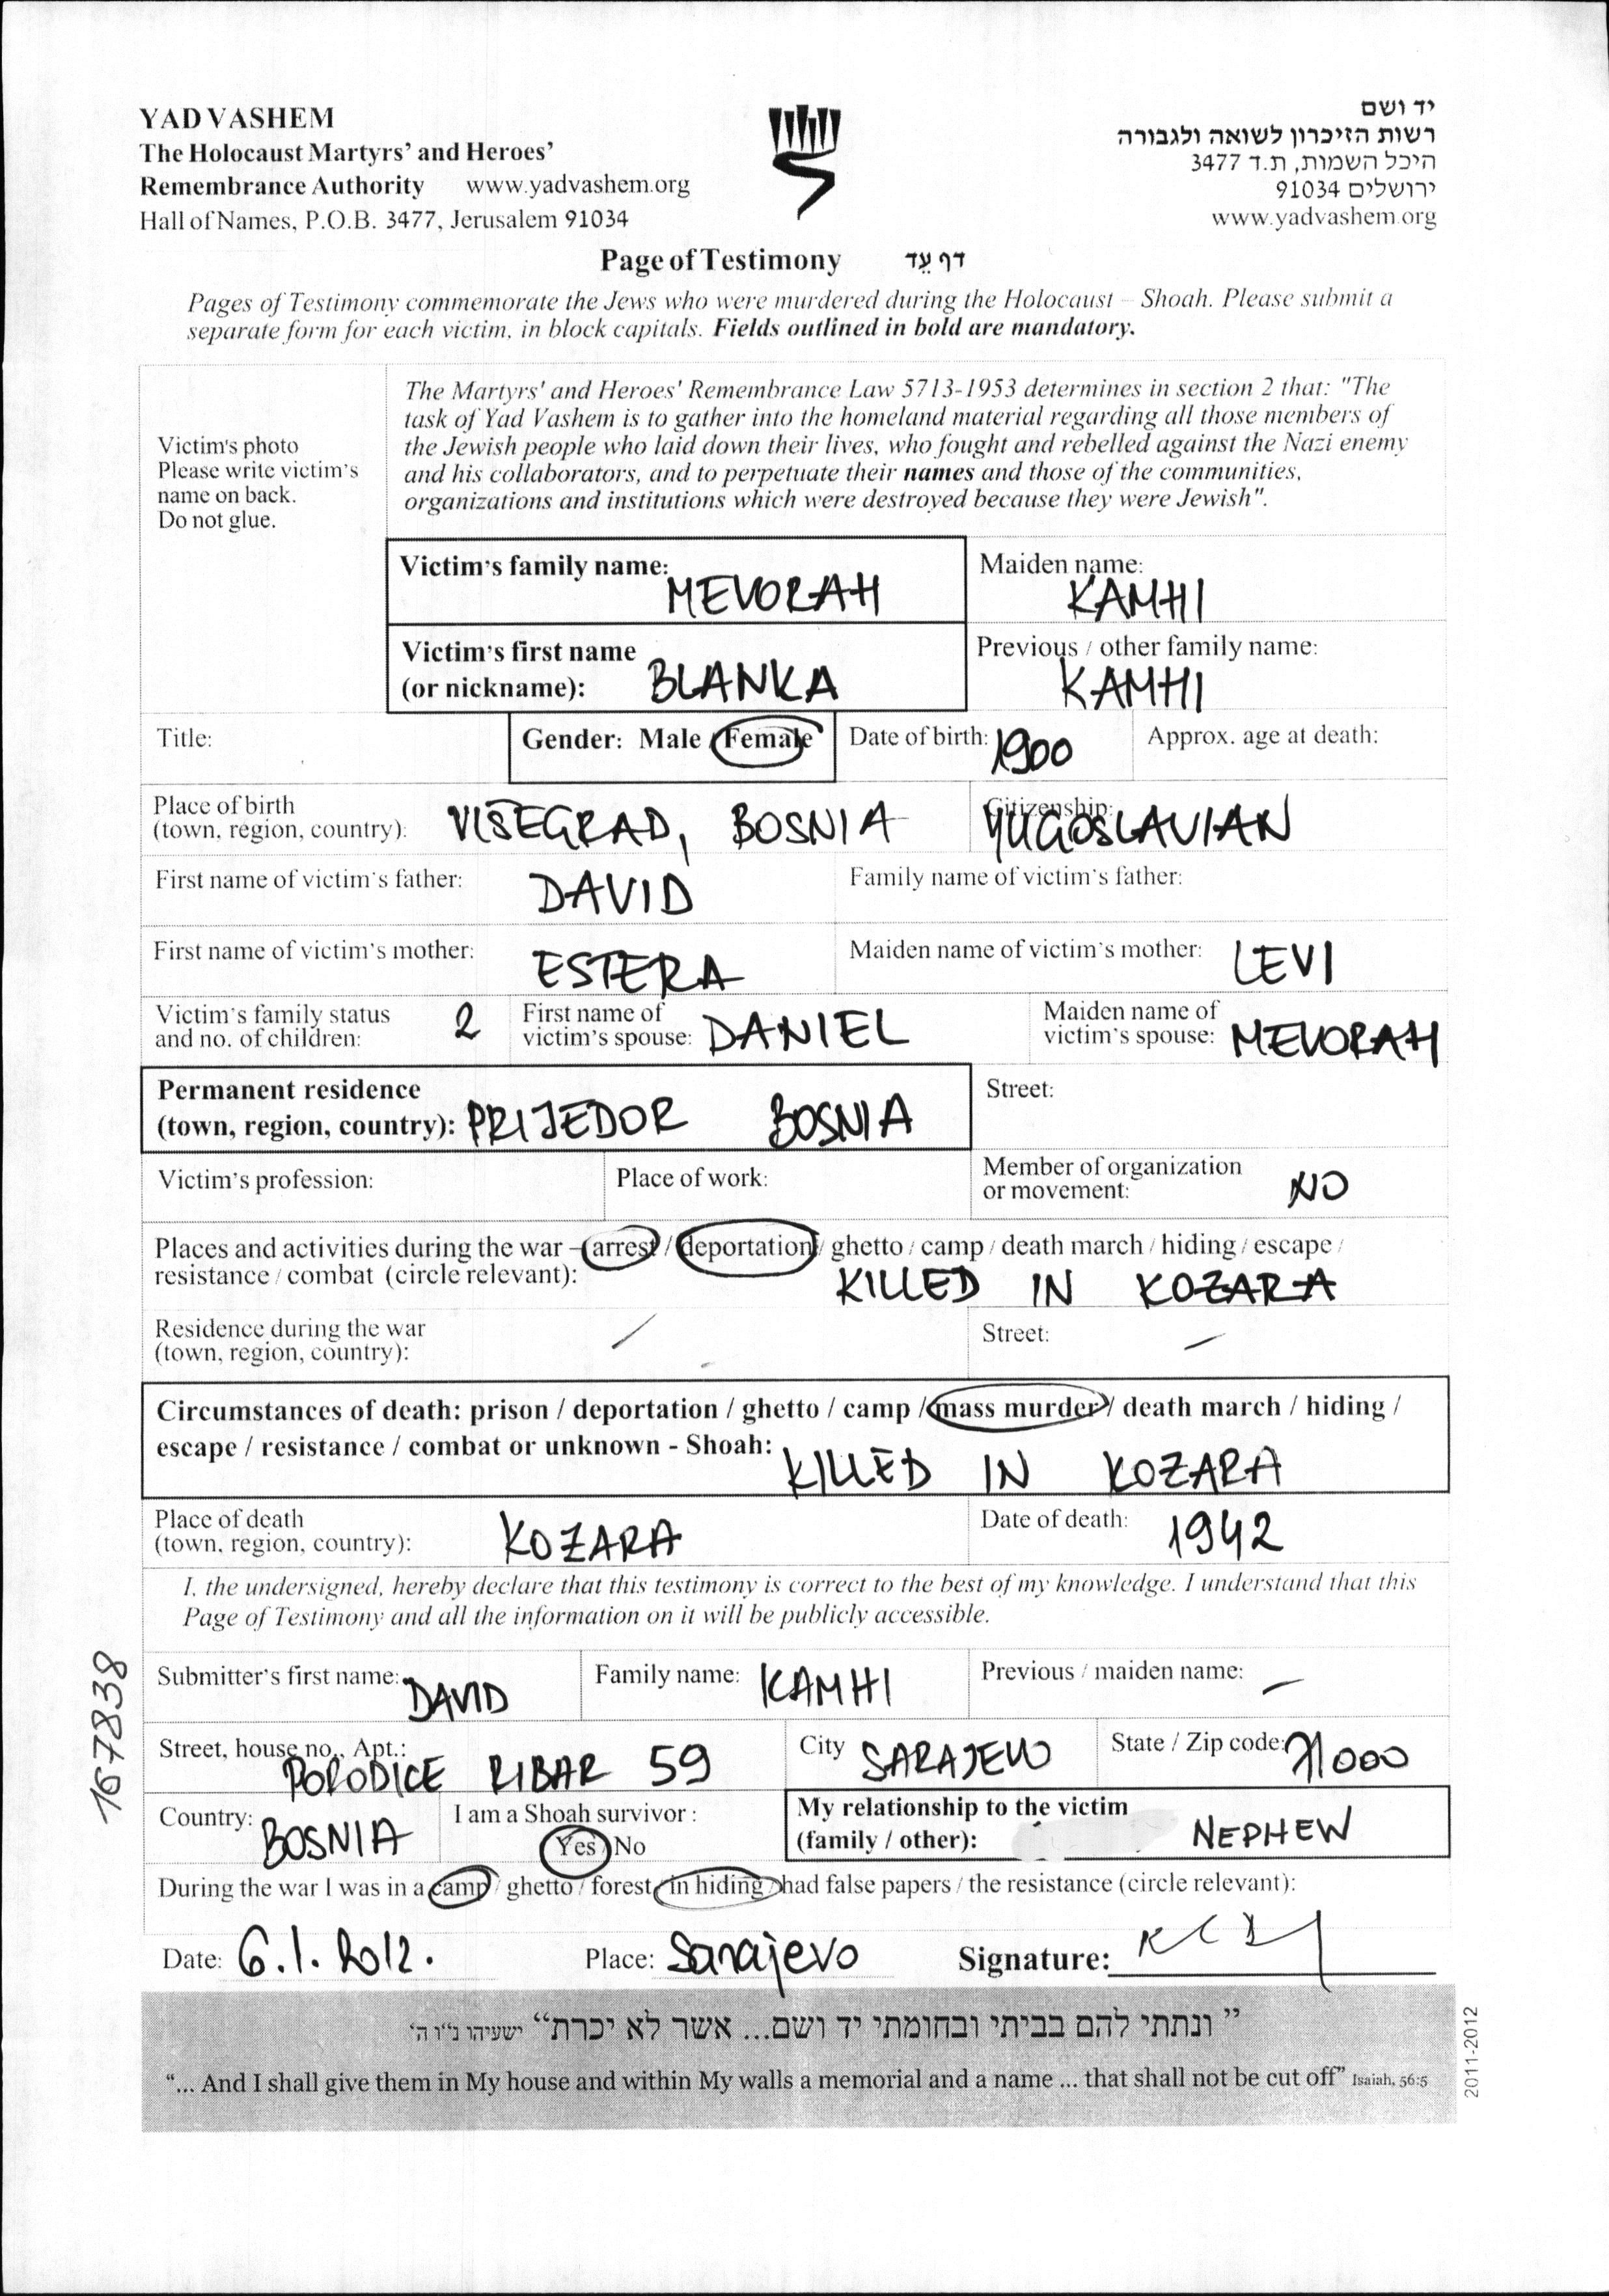 YAD VASHEM
The Holocaust Martyrs' and Heroes'
Remembrance Authority www.yadvashem.org
Hall of Names, P.O.B. 3477, Jerusalem 91034
יד ושם
רשות הזיכרון לשואה ולגבורה
היכל השמות, ת.ד 3477
ירושלים 91034
www.yadvashem.org
Page of Testimony דף עֵד
Pages of Testimony commemorate the Jews who were murdered during the Holocaust – Shoah. Please submit a
separate form for each victim, in block capitals. Fields outlined in bold are mandatory.
Victim's photo
Please write victim's
name on back.
Do not glue.
The Martyrs' and Heroes' Remembrance Law 5713-1953 determines in section 2 that: "The
task of Yad Vashem is to gather into the homeland material regarding all those members of
the Jewish people who laid down their lives, who fought and rebelled against the Nazi enemy
and his collaborators, and to perpetuate their names and those of the communities,
organizations and institutions which were destroyed because they were Jewish".
Victim's family name: MEVORAH
Maiden name: KAMHI
Victim's first name
(or nickname): BLANKA
Previous / other family name:
KAMHI
Title:
Gender: Male / Female
Date of birth: 1900
Approx. age at death:
Place of birth
(town, region, country): VIŠEGRAD, BOSNIA
Citizenship: YUGOSLAVIAN
First name of victim's father: DAVID
Family name of victim's father:
First name of victim's mother: ESTERA
Maiden name of victim's mother: LEVI
Victim's family status
and no. of children: 2
First name of
victim's spouse: DANIEL
Maiden name of
victim's spouse: MEVORAH
Permanent residence
(town, region, country): PRIJEDOR BOSNIA
Street:
Victim's profession:
Place of work:
Member of organization
or movement: NO
Places and activities during the war – arrest / deportation / ghetto / camp / death march / hiding / escape /
resistance / combat (circle relevant): KILLED IN KOZARA
Residence during the war /
(town, region, country):
Street: –
Circumstances of death: prison / deportation / ghetto / camp / mass murder / death march / hiding /
escape / resistance / combat or unknown - Shoah: KILLED IN KOZARA
Place of death
(town, region, country): KOZARA
Date of death: 1942
I, the undersigned, hereby declare that this testimony is correct to the best of my knowledge. I understand that this
Page of Testimony and all the information on it will be publicly accessible.
Submitter's first name: DAVID
Family name: KAMHI
Previous / maiden name: –
Street, house no., Apt.: PORODICE RIBAR 59
City SARAJEVO
State / Zip code: 71000
Country: BOSNIA
I am a Shoah survivor :
Yes / No
My relationship to the victim
(family / other): NEPHEW
During the war I was in a camp / ghetto / forest / in hiding / had false papers / the resistance (circle relevant):
Date: 6.1.2012. Place: Sarajevo Signature:
” ונתתי להם בביתי ובחומתי יד ושם... אשר לא יכרת“ ישעיהו נ“ו ה‘
“... And I shall give them in My house and within My walls a memorial and a name ... that shall not be cut off” Isaiah, 56:5
167838
2011-2012